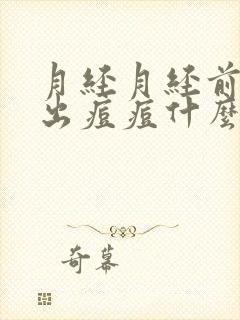 月经月经前
出痘痘什麼
奇幕